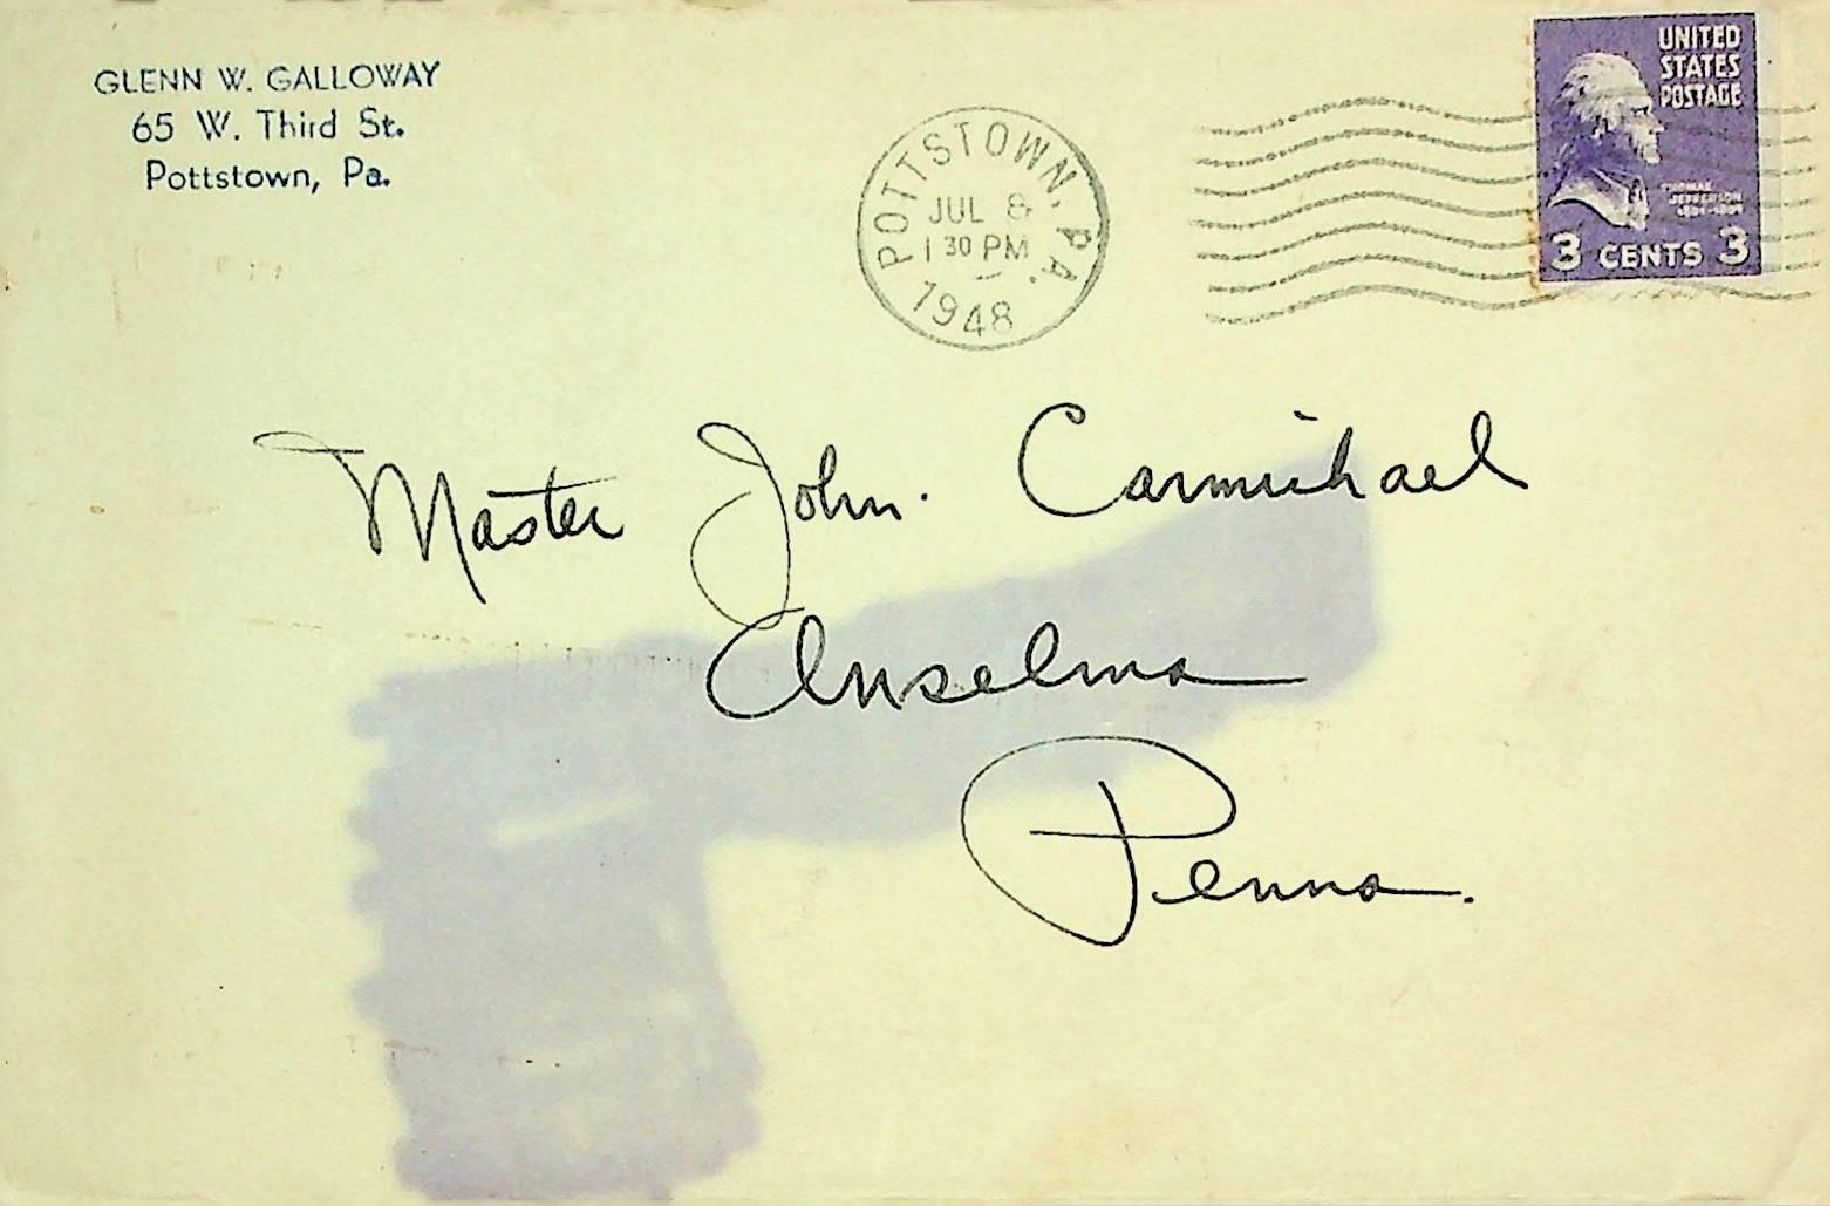 GLENN W. GALLOWAY
65 W. Third St.
Pottstown, Pa.
POTTSTOWN, PA.
JUL 8
1 30 PM
1948
UNITED
STATES
POSTAGE
THOMAS
JEFFERSON
1801-1809
3 CENTS 3
Master John. Carmichael
Anselma
Penna.